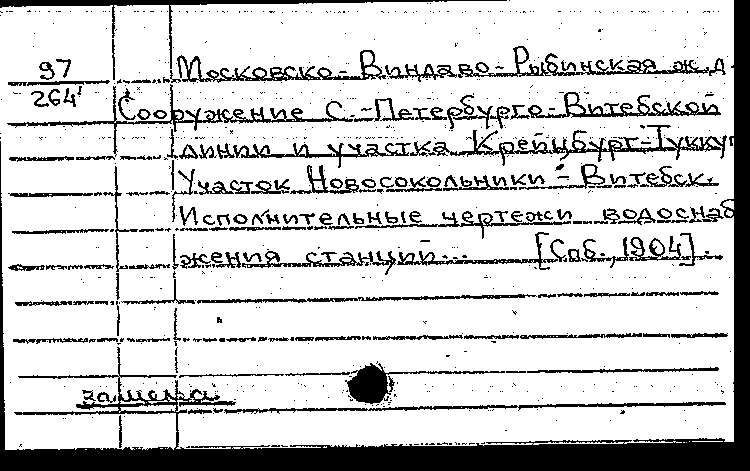 97
264¹
Московско-Виндаво-Рыбинская ж.д.
Сооружение С.-Петербурго-Витебской
линии и участка Крейцбург-Туккум
Участок Новосокольники - Витебск.
Исполнительные чертежи водоснаб
жения станций... [Спб., 1904].
замена